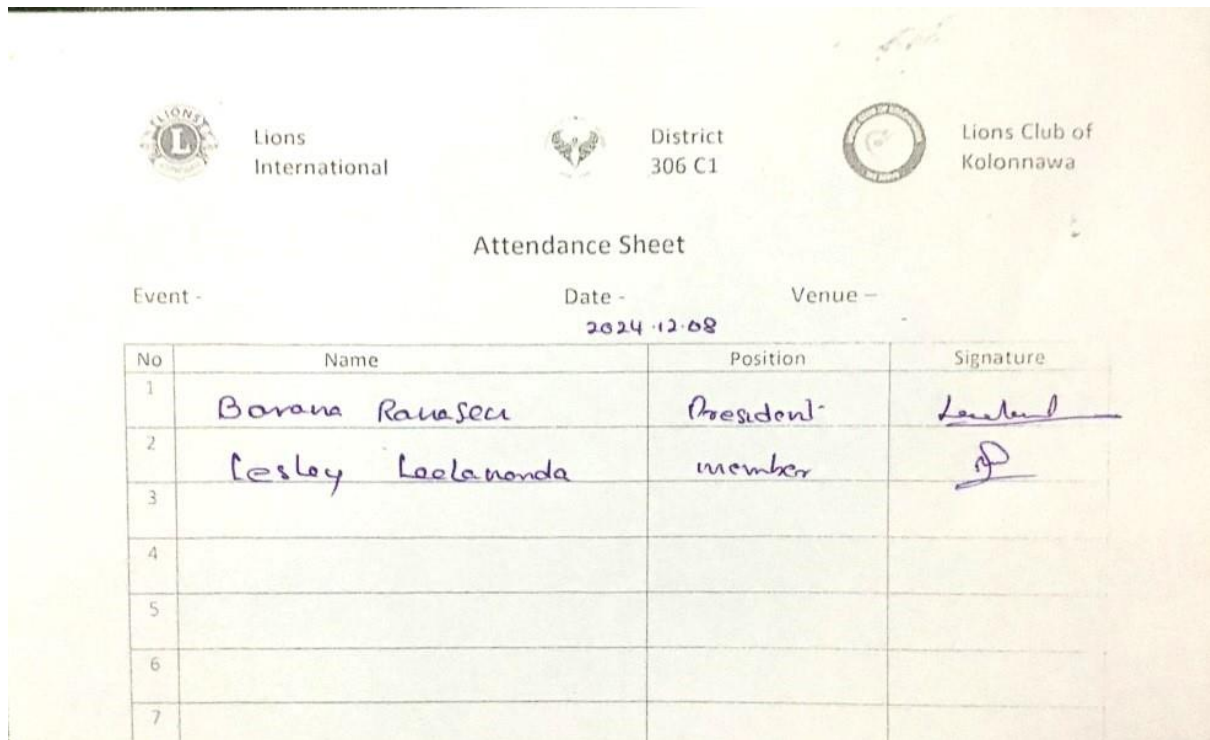 LIONS
L
Lions
International
District
306 C1
Lions Club of
Kolonnawa
Attendance Sheet
Event - Date - Venue –
2024.12.08
No Name Position Signature
1 President
2 Lesley Leelananda member
3
4
5
6
7